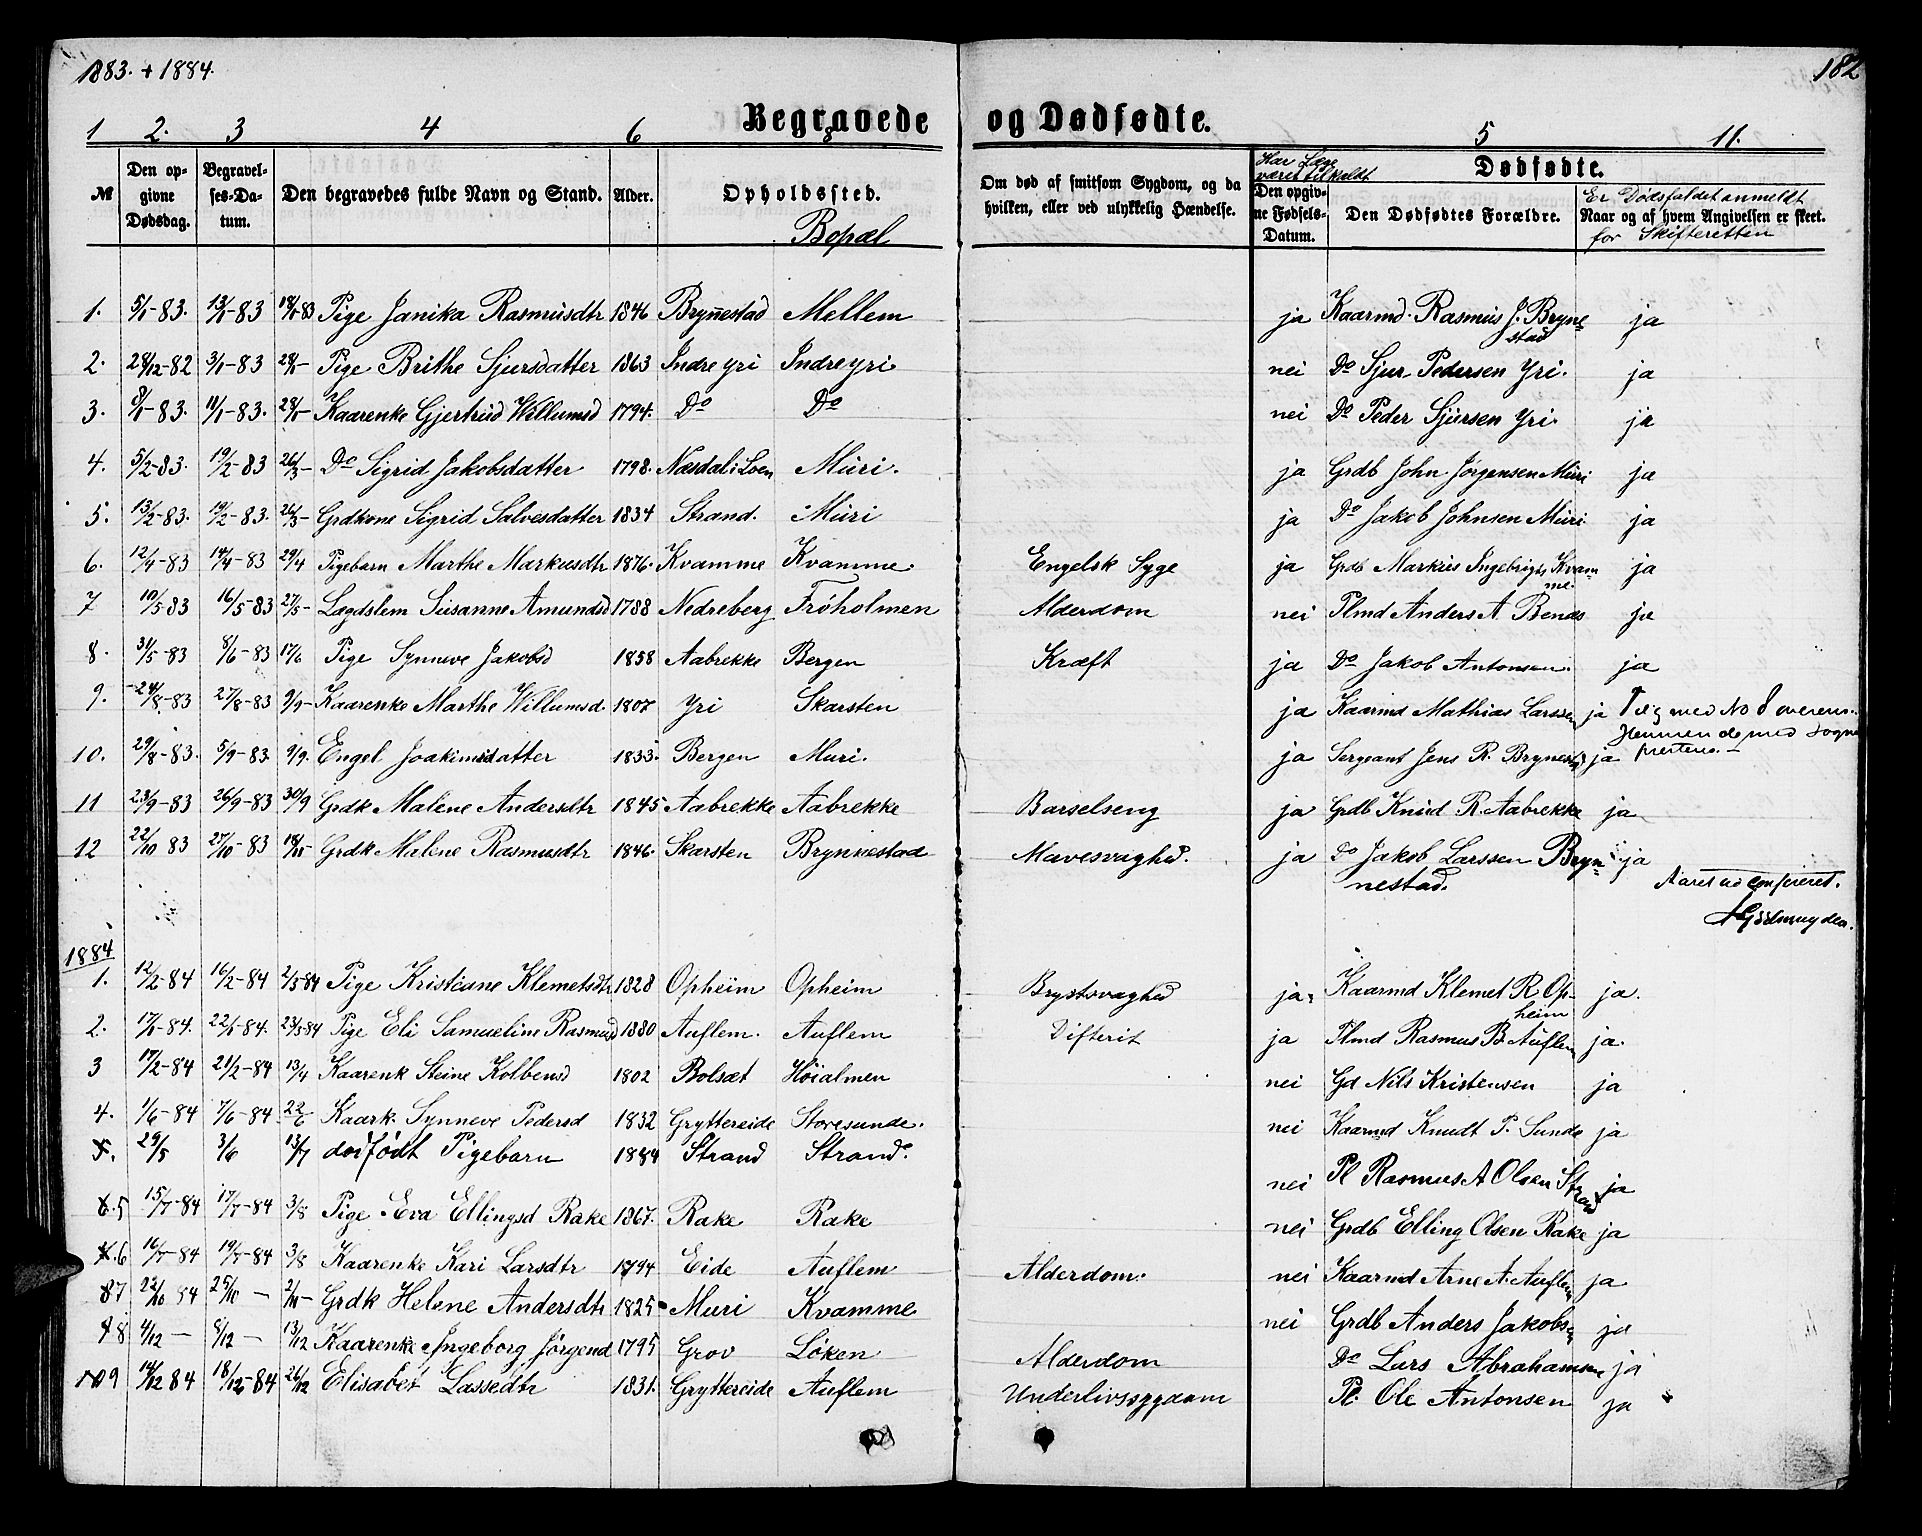 1883. + 1884.
182
Begravede og Dødfødte.
1 2. 3 4 6 8 5 11.
№ Den opgivne Dødsdag. Begravelses-Datum. Den begravedes fulde Navn og Stand. Alder. Opholdssted. Bopæl Om død af smitsom Sygdom, og da hvilken, eller ved ulykkelig Hændelse. Har Læge været tilkaldt Den opgivne Fødsels-Datum. Dødfødte. Den Dødfødtes Forældre. Er Dødsfaldet anmeldt for Skifteretten Naar og af hvem Angivelsen er skeet.
1. 5/1-83. 13/1-83 18/1 83 Pige Janika Rasmusdtr 1846 Brynestad Mellem ja Kaarmd. Rasmus J. Brynestad ja
2. 28/12-82 3/1-83 28/1- Pige Brithe Sjursdatter 1863 Indre yri Indre yri. nei Do Sjur Pedersen Yri. ja
3. 8/1-83. 11/1-83. 28/1- Kaarenke Gjertrud Willumsd 1794. Do Do nei Do Peder Sjursen Yri. ja
4. 5/2-83. 19/2-83 26/3- Do Sigrid Jakobsdatter 1798. Næsdal i Loen Muri. ja Grdb John Jørgensen Muri ja
5. 13/2-83. 19/2-83. 26/3- Grdkone Sigrid Salvesdatter 1834 Strand. Muri ja Do Jakob Johnsen Muri ja
6. 12/4-83 14/4-83 29/4 Pigebarn Marthe Markusdtr 1876. Kvamme Kvamme. Engelsk Syge ja Grdb Markus Ingebrigts Kvamme. ja
7 10/5 83 16/5-83 27/5- Lægdslem Susanne Amundsd 1788 Nedreberg Frøholmen Alderdom nei Plmd Anders A. Bends ja
8. 31/5-83 8/6-83 17/6 Pige Synneve Jakobsd 1858 Aabrekke Bergen Kræft ja Do Jakob Antonsen. ja
9. 24/8-83 27/8-83 9/9- Kaarenke Marthe Willumsd. 1807 Yri Skarsten ja Kaarmd Mathias Larssen ja
10. 29/8-83. 5/9-83. 9/9. Engel Joakimsdatter 1833. Bergen Muri. ja Sergeant Jens R. Brynest ja
Til og med No 8 overensstemmende med Sogneprestens.-
11 23/9-83 26/9-83 30/9 Grdk Malene Andersdtr 1845 Aabrekke Aabrekke Barselseng ja Grdb Knud R. Aabrekke ja
12 22/10 83 27/10-83 18/11 Grdk Malene Rasmusdtr 1846. Skarsten Brynnestad Mavesvaghed. ja Do Jakob Larssen Brynnestad. ja
Aaret ud confereret.
1884
1. 12/2-84 16/2-84 2/3-84 Pige Kristiane Klemetsdtr 1828 Opheim Opheim Brystsvaghed ja. Kaarmd Klemet R. Opheim ja.
2. 17/1-84. 22/1-84. 23/3-84 Pige Eli Samueline Rasmusd 1880 Auflem. Auflem Difterit ja Plmd Rasmus B. Auflem ja.
3 17/2-84 21/2-84 13/4 Kaarenk Steine Kolbensd 1802 Bolsæt Høialmen nei Gd Nils Kristensen ja
4. 1/6-84 7/6-84 22/6 Kaark. Synneve Pedersd 1832 Gryttereide Storesunde. nei Kaarmd Knudt P. Sunde ja
5. 29/5 3/6 13/7 dødfødt Pigebarn 1884 Strand Strand. nei Pl Rasmus A Olsen Strand ja
6. 5 15/7-84 17/7-84 3/8 Pige Eva Ellingsd Rake 1867. Rake Rake nei Grdb Elling Olsen Rake ja
7. 6 16/7-84 19/7-84 3/8 Kaarenke Kari Larsdtr 1794 Eide Auflem Alderdom. nei Kaarmd Arne A. Auflem ja
8 7 22/10 84 25/10- 2/11- Grdk Helene Andersdtr 1825 Muri Kvamme nei Grdb Anders Jakobs ja
9 8 4/12- 8/12- 13/12 Kaarenke Ingeborg Jørgend 1795 Grov Løken Alderdom Do Lars Abrahamsen ja
10 9 14/12 84 18/12-84 26/12 Elisabet Lassedtr 1831. Gryttereide Auflem Underlivssygdom Pl. Ole Antonsen ja